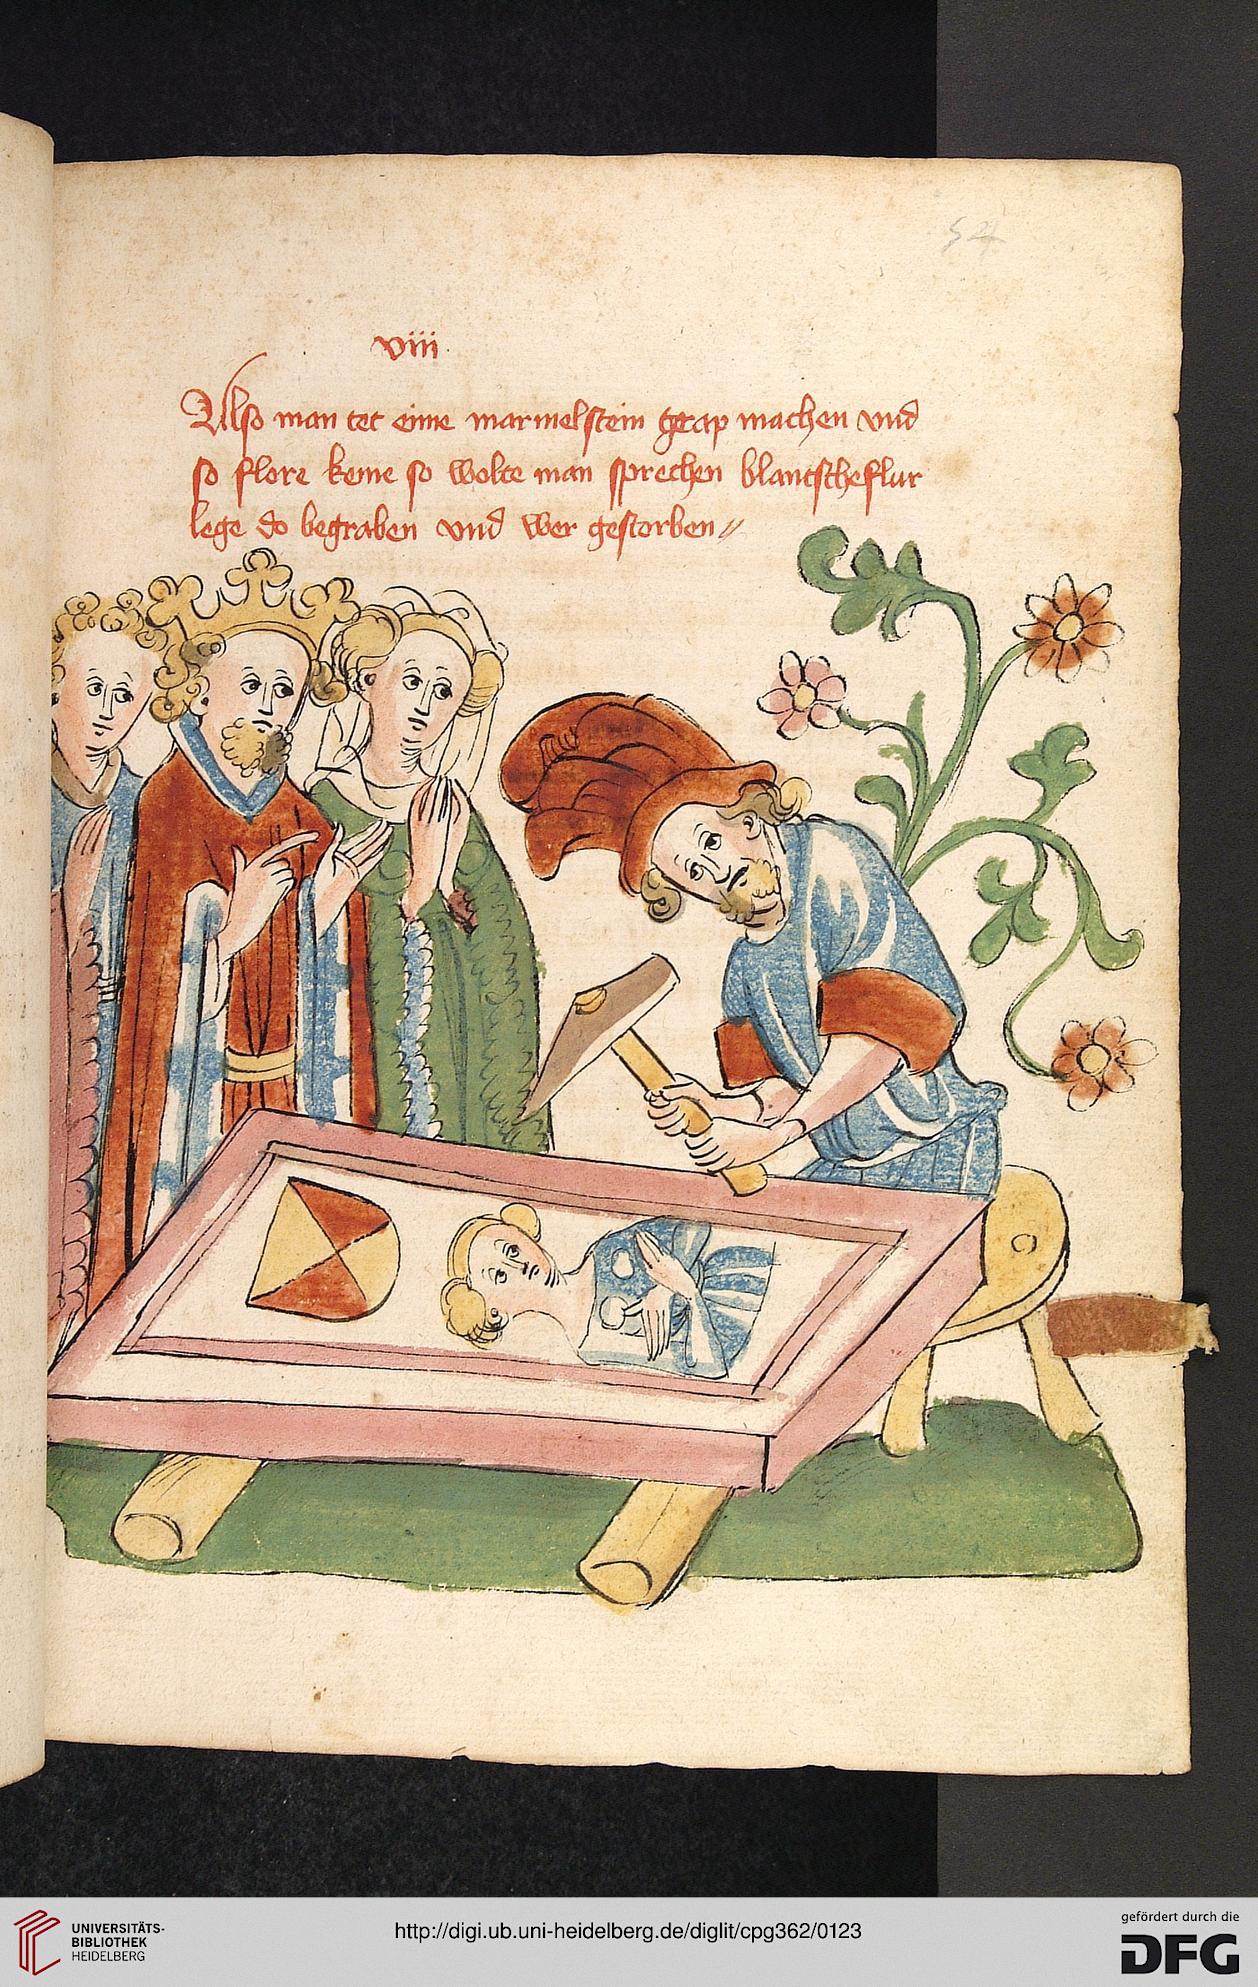 54
viii
Also man tet eime marmelstein grap machen vnd
so flore keme so wolte man sprechen blantscheflur
lege do begraben vnd wer gestorben //
UNIVERSITÄTS-
BIBLIOTHEK
HEIDELBERG
http://digi.ub.uni-heidelberg.de/diglit/cpg362/0123
gefördert durch die
DFG